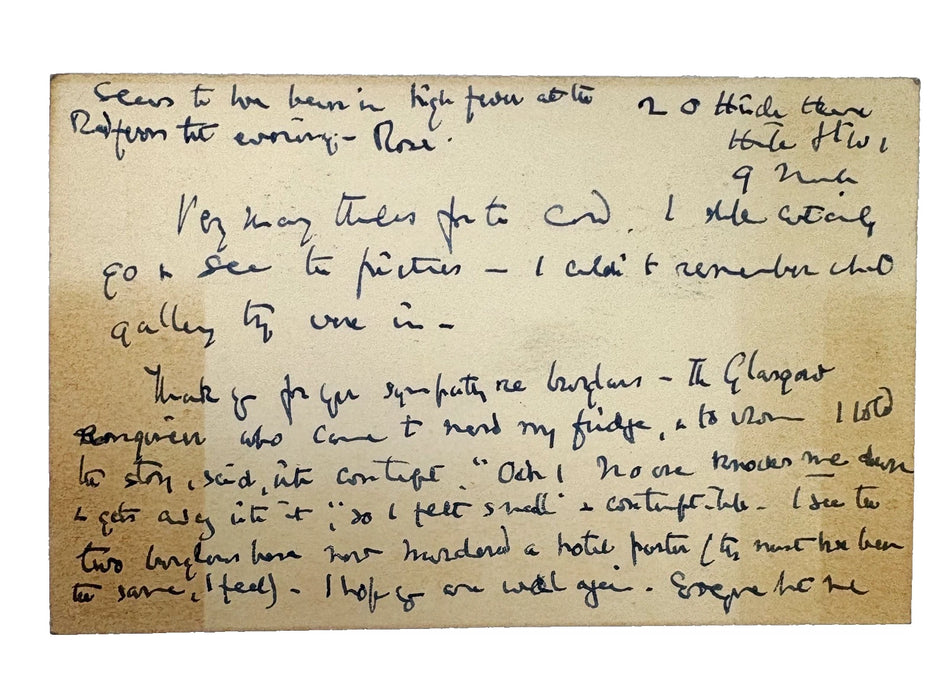 Seems to have been in high fever at the
Redfern that evening - Rose.
20 Hinde House
Hinde St W1
9 March
Very many thanks for the card. I shall certainly
go & see the pictures – I couldn't remember what
gallery they were in –
Thank you for your sympathy re burglars – the Glasgow
engineer who came to mend my fridge, & to whom I told
the story, said, with contempt, "Och! No one knocks me down
& gets away with it"; so I felt small & contemptible. I see the
two burglars have now murdered a hotel porter (they must have been
the same, I feel) – I hope you are well again. Everyone but me